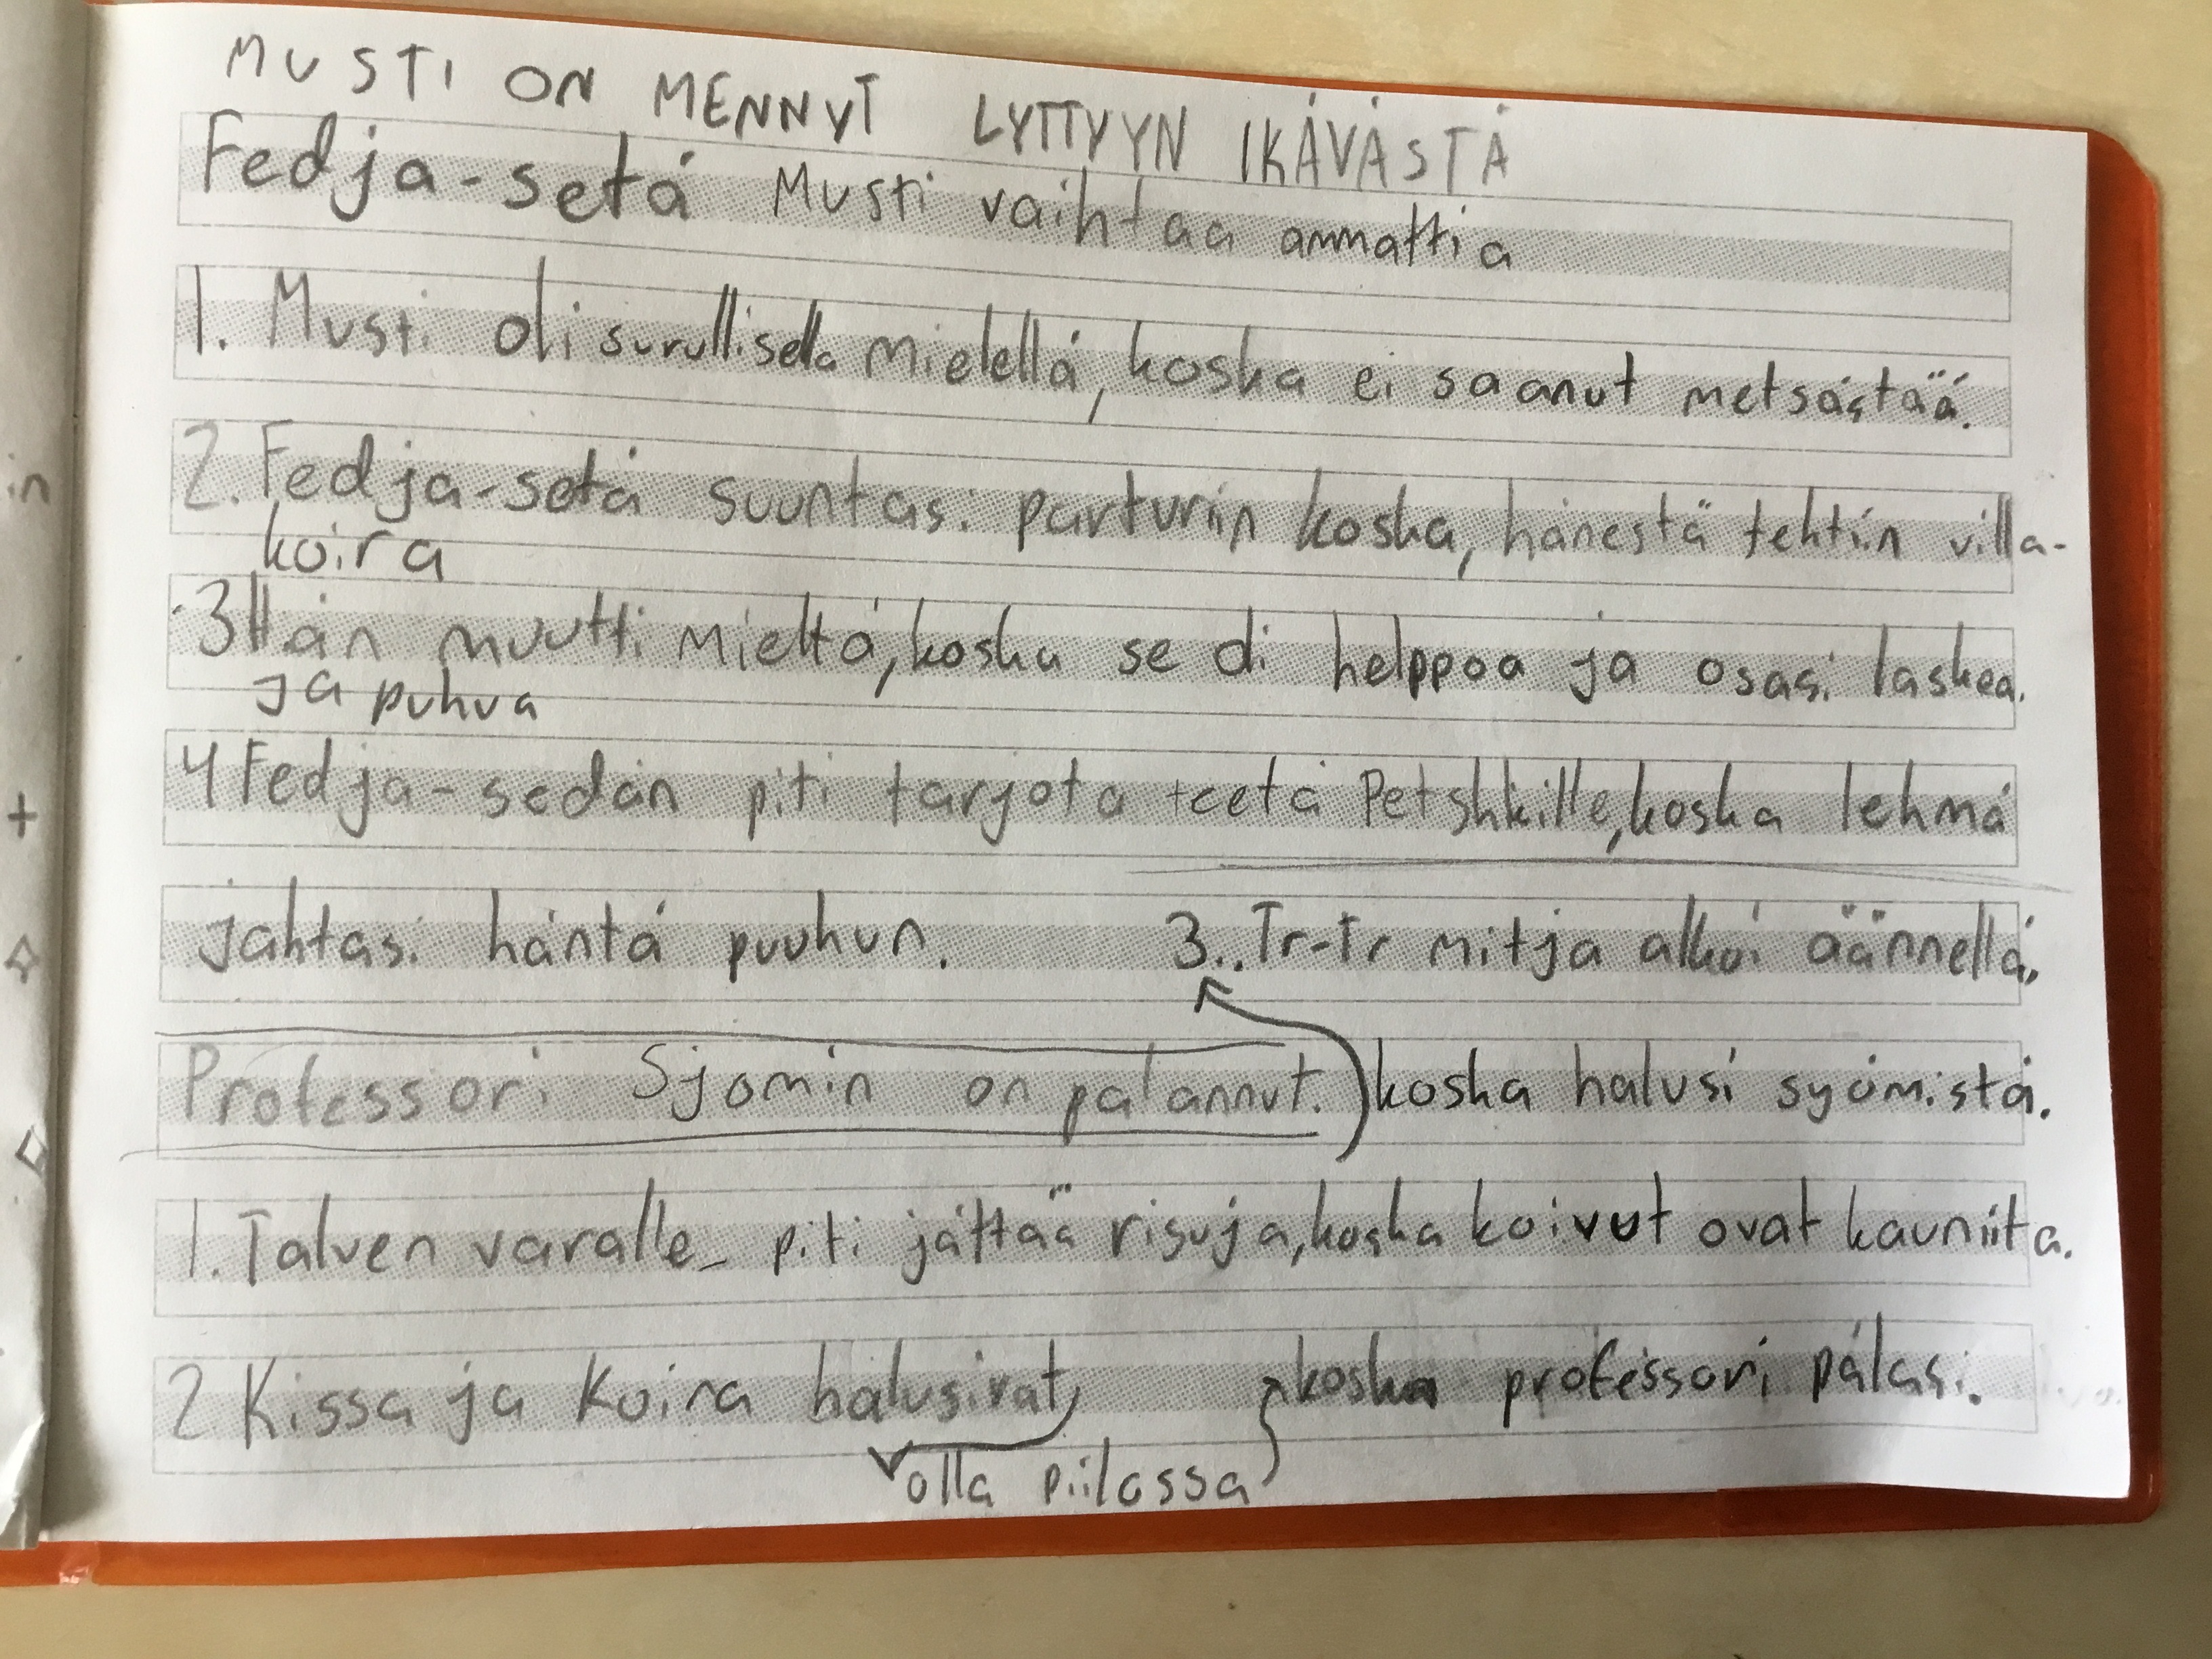 MUSTI ON MENNYT LYTTYYN IKÄVÄSTÄ
Fedja-setä Musti vaihtaa ammattia
1. Musti oli surullisella mielellä, koska ei saanut metsästää.
2. Fedja-setä suuntasi parturiin koska, hänestä tehtiin villa-
koira
3 Hän muutti mieltä, koska se oli helppoa ja osasi laskea.
ja puhua
4 Fedja-sedän piti tarjota teetä Petshkille, koska lehmä
jahtasi häntä puuhun.
Professori Sjomin on palannut.
1. Talven varalle piti jättää risuja, koska koivut ovat kauniita.
2 Kissa ja Koira halusivat,
olla piilossa
koska professori palasi.
3.. Tr-Tr mitja alkoi äännellä,
koska halusi syömistä.
in
+